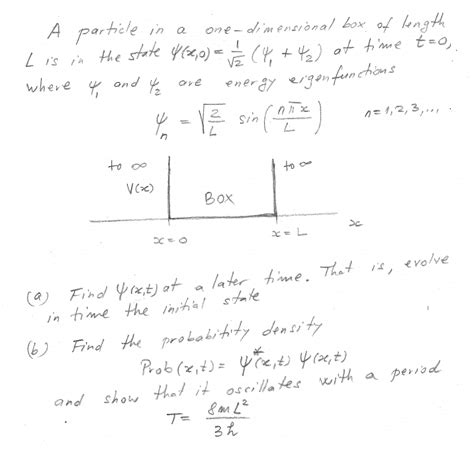 A particle in a one-dimensional box of length
L is in the state ψ(x,0) = 1/√2 (ψ₁ + ψ₂) at time t=0,
where ψ₁ and ψ₂ are energy eigenfunctions
ψₙ = √(2/L) sin(nπx/L) n=1,2,3,... .
to ∞ to ∞
V(x)
BOX
x=0 x=L x
(a) Find ψ(x,t) at a later time. That is, evolve
in time the initial state
(b) Find the probabitity density
Prob(x,t) = ψ*(x,t) ψ(x,t)
and show that it oscillates with a period
T = 8mL²/3h